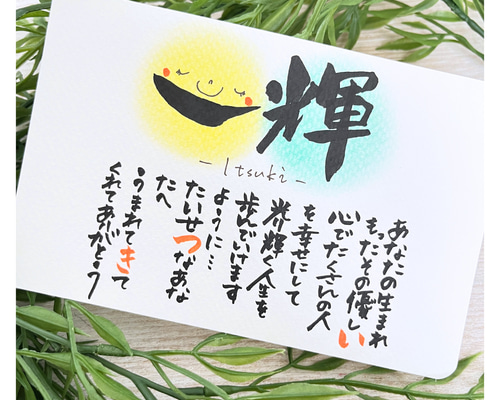 一輝
- Itsuki -
あなたの生まれ
もったその優しい
心でたくさんの人
を幸せにして
光輝く人生を
歩んでいけます
ように…
たいせつなあな
たへ
うまれてきて
くれてありがとう